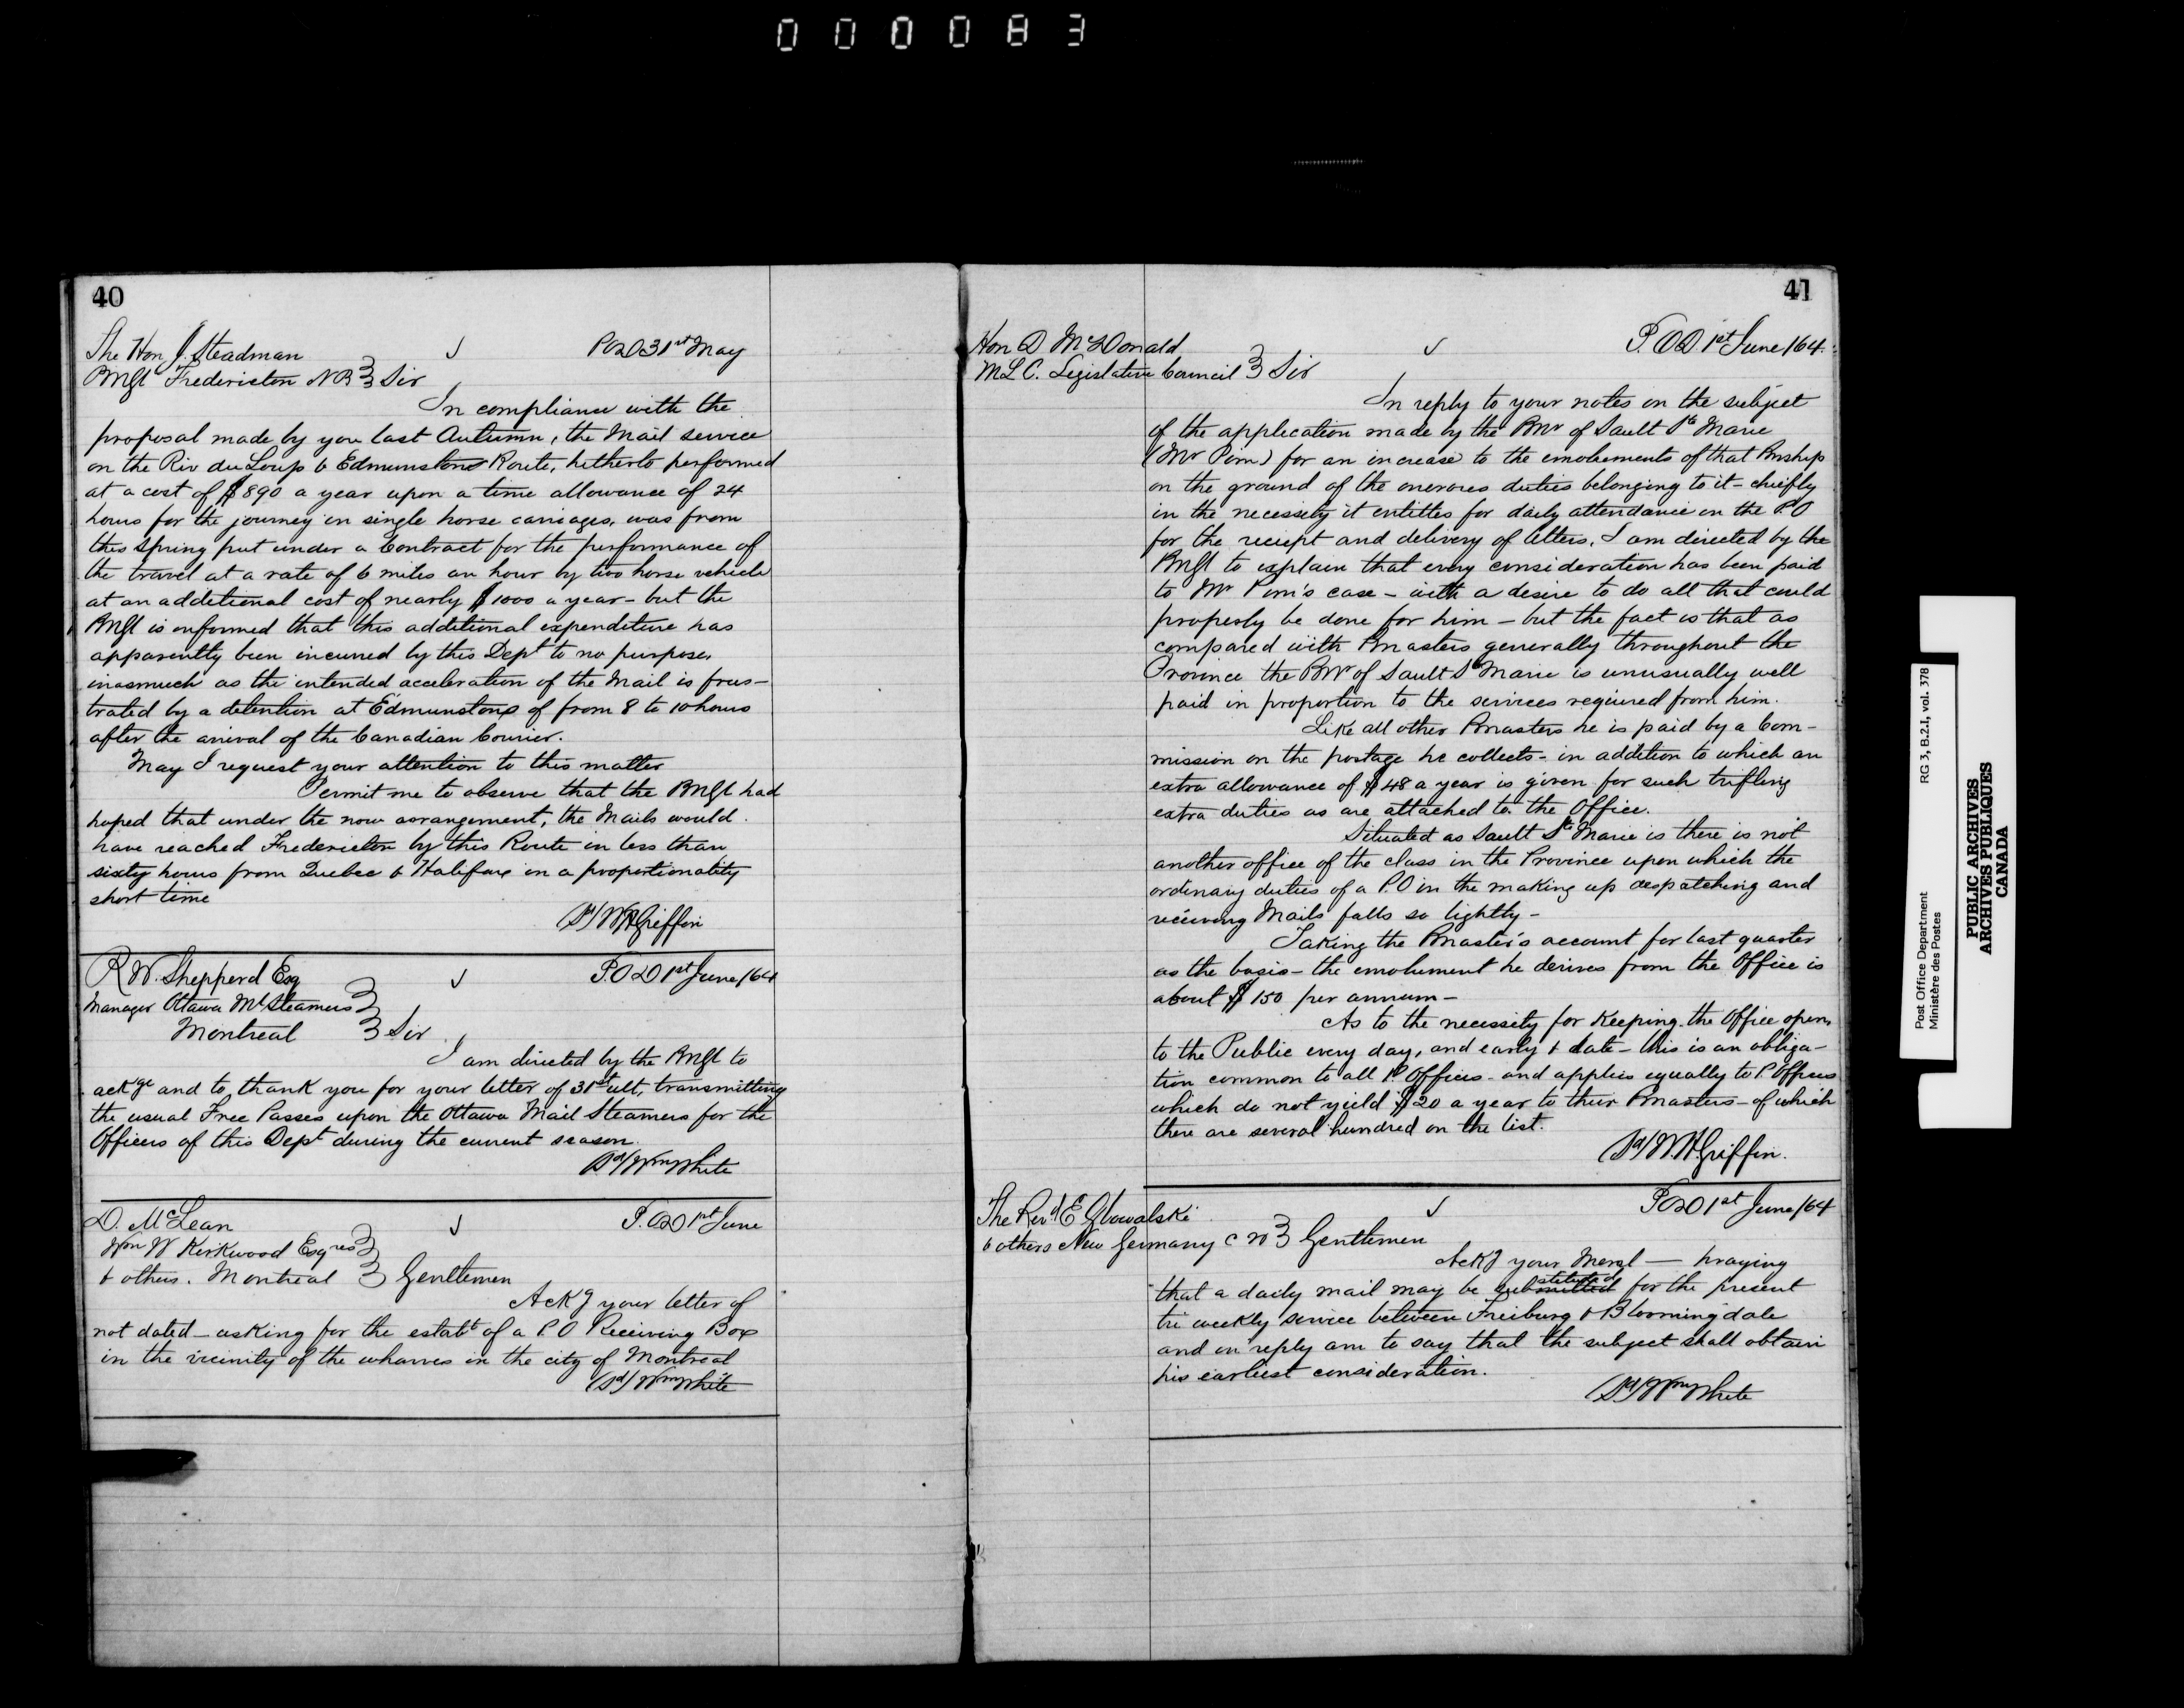 000083
40
The Hon J. Steadman
POD 31st May
PMGl Fredericton NB Sir
In compliance with the
proposal made by you last Autumn, the Mail service
on the Riv du Loup & Edmunstone Route, hitherto performed
at a cost of $890 a year upon a time allowance of 24
hours for the journey in single horse carriages, was from
this Spring put under a Contract for the performance of
the travel at a rate of 6 miles an hour by two horse vehicle
at an additional cost of nearly $1000 a year - but the
PMGl is informed that this additional expenditure has
apparently been incurred by this Dept to no purpose,
inasmuch as the intended acceleration of the Mail is frus-
trated by a detention at Edmunstone of from 8 to 10 hours
after the arrival of the Canadian Courier.
May I request your attention to this matter
Permit me to observe that the PMGl had
hoped that under the now arrangement, the Mails would
have reached Fredericton by this Route in less than
sixty hours from Quebec & Halifax in a proportionality
short time
(Sd) WHGriffin
R W. Shepperd Esq
P.O.D 1st June/64
Manager Ottawa Ml Steamers
Montreal Sir
I am directed by the PMGl to
ackge and to thank you for your letter of 31st ult, transmitting
the usual Free Passes upon the Ottawa Mail Steamers for the
Officers of this Dept during the current season.
(Sd) Wm White
D. McLean
P.OD 1st June
Wm W Kirkwood Esqres
& others. Montreal Gentlemen
Ackg your letter of
not dated - asking for the estabt of a P.O Receiving Box
in the vicinity of the wharves in the city of Montreal
(Sd) Wm White
41
Hon D McDonald
P.OD. 1st June/64.
MLC. Legislative Council Sir
In reply to your notes on the subject
of the application made by the PMr of Sault Ste Marie
(Mr Pim) for an increase to the emoluments of that Pmship
on the ground of the onerous duties belonging to it - chiefly
in the necessity it entitles for daily attendance in the P.O
for the receipt and delivery of letters, I am directed by the
PMGl to explain that every consideration has been paid
to Mr Pim's case - with a desire to do all that could
properly be done for him - but the fact is that as
compared with Pmasters generally throughout the
Province the PMr of Sault Ste Marie is unusually well
paid in proportion to the services required from him.
Like all other Pmasters he is paid by a Com-
mission on the postage he collects - in addition to which an
extra allowance of $48 a year is given for such trifling
extra duties as are attached to the Office.
Situated as Sault Ste Marie is there is not
another office of the class in the Province upon which the
ordinary duties of a P.O in the making up despatching and
receiving Mails falls so lightly -
Taking the Pmaster's account for last quarter
as the basis - the emolument he derives from the Office is
about $150 per annum -
As to the necessity for keeping the Office open,
to the Public every day, and early & late - this is an obliga-
tion common to all P. Offices - and applies equally to P. Offices
which do not yield $20 a year to their Pmasters - of which
there are several hundred on the list.
(Sd) W.H.Griffin.
The Revd E Glowalski
POD 1st June/64
& others New Germany C W Gentlemen
Ackg your Meml — praying
that a daily mail may be substituted for the present
tri weekly service between Freiburg & Bloomingdale
and in reply am to say that the subject shall obtain
his earliest consideration.
(Sd) Wm White
Post Office Department
Ministère des Postes
RG 3, B.2.1, vol. 378
PUBLIC ARCHIVES
ARCHIVES PUBLIQUES
CANADA